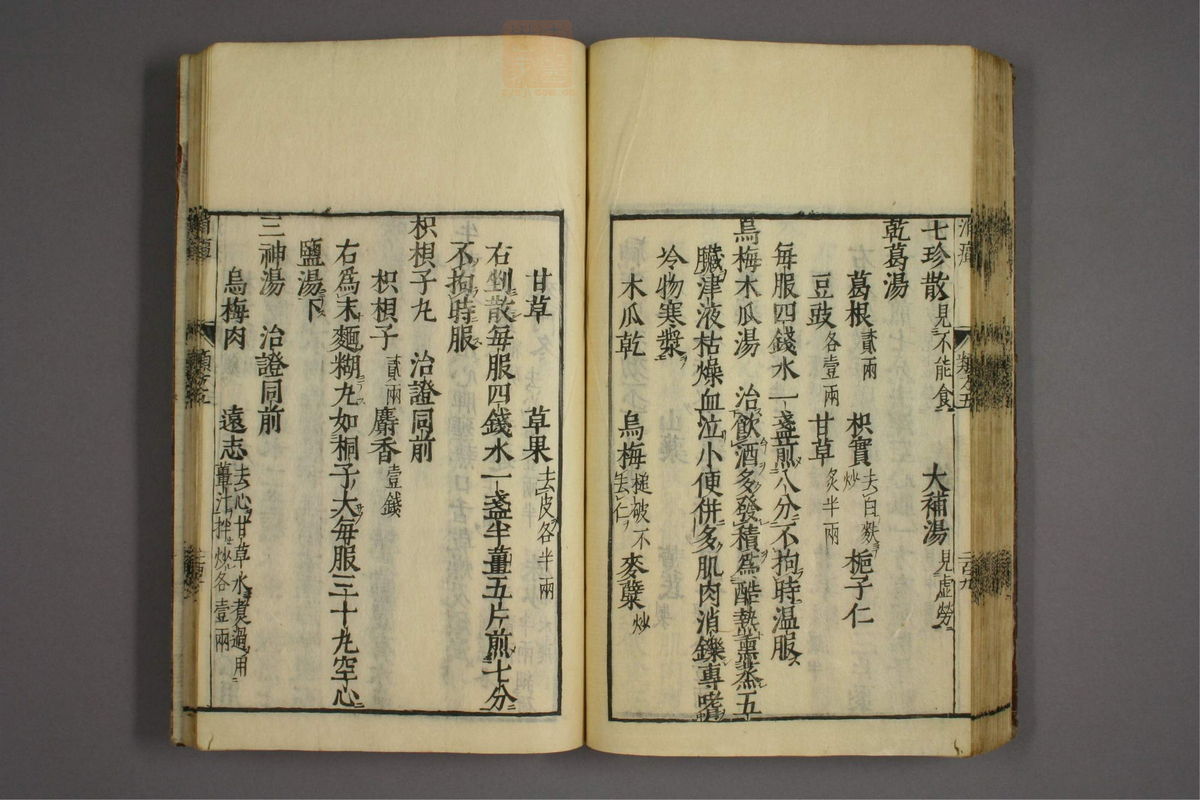 七珍散見不能食 大補湯見虛勞
乾葛湯
葛根貳兩 枳實去白麩炒 梔子仁
豆豉各壹兩 甘草炙半兩
毎服四錢水一盞煎八分不拘時温服
烏梅木瓜湯 治飲酒多發積爲酷熱薰蒸五
臟津液枯燥血泣小便併多肌肉消鑠專嗜
冷物寒漿
木瓜乾 烏梅搥破不去仁 麥蘗炒
甘草 草果去皮各半兩
右剉散毎服四錢水一盞半薑五片煎七分
不拘時服
枳椇子丸 治證同前
枳椇子貳兩 麝香壹錢
右爲末麵糊丸如桐子大毎服三十丸空心
鹽湯下
三神湯 治證同前
烏梅肉 遠志去心甘草水煮過用薑汁拌炒各壹兩
消癉 類方五